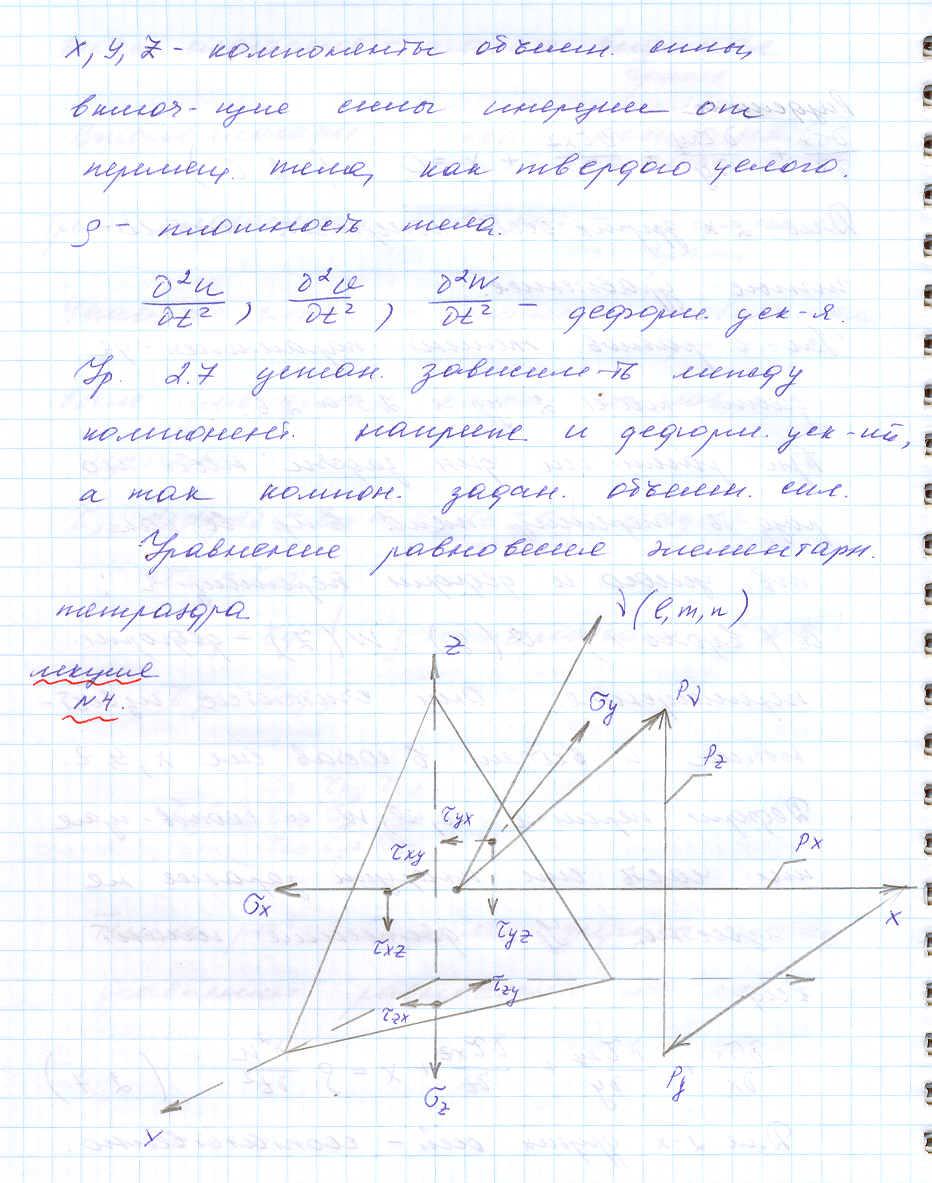 X, У, Z - компоненты объемн. силы,
включ-щие силы инерции от
перемещ. тела, как твердого целого.
ρ - плотность тела.
∂²u/∂t², ∂²v/∂t², ∂²w/∂t² - деформ. уск-я.
Ур. 2.7 устан. зависим-ть между
компонент. напряж и деформ. уск-ий,
а так компон. задан. объемн. сил.
Уравнение равновесия элементарн.
тетраэдра
лекция
N 4.
ν (l, m, n)
Z
σy
Pν
Pz
τyx
τxy
Px
σx
τxz
τyz
X
τzy
τzx
Py
σz
Y